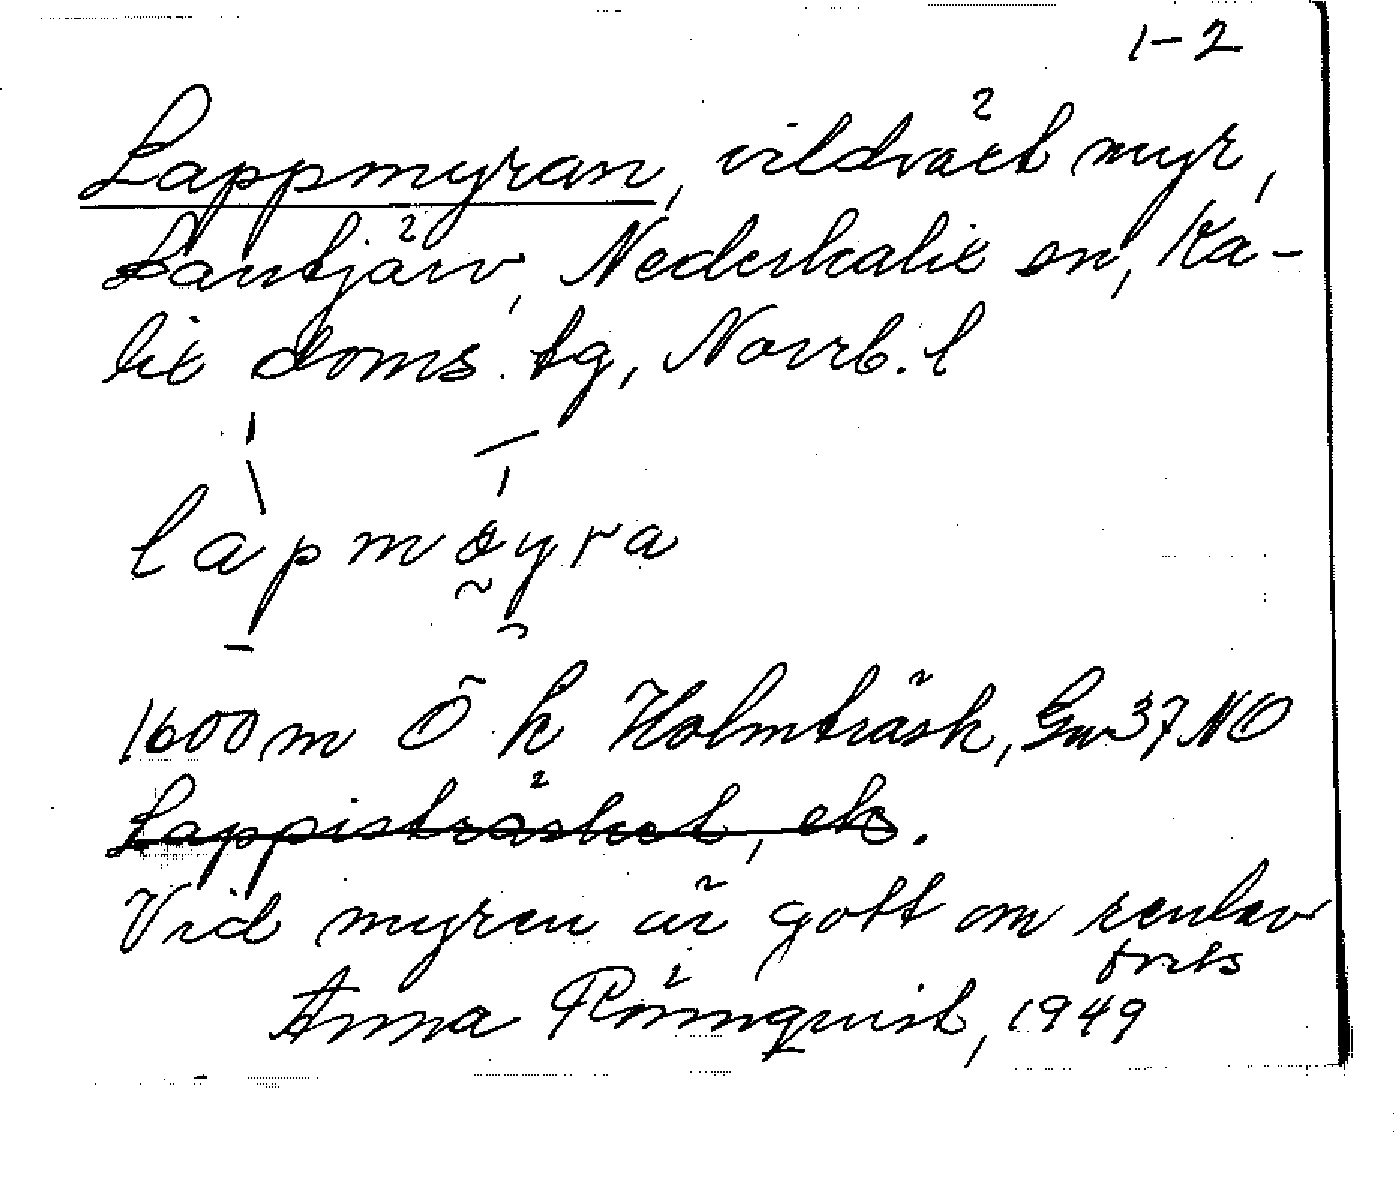 1-2
Lappmyran, vildväxt myr,
Lantjärv, Nederkalix sn, Ka-
lix doms. tg, Norrb. l
lapmøyra
1600 m Ö k Holmträsk, Gm 37 NO
Lappisträsket, ek.
Vid myren är gott om renlav
forts
Anna Rönnqvist, 1949